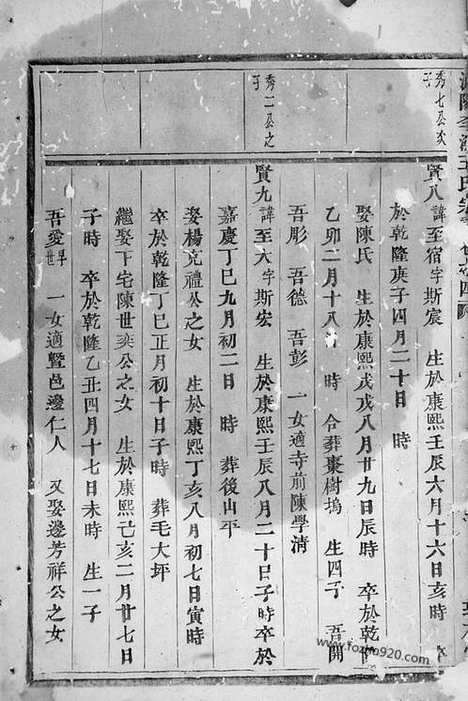 秀七公次子
賢八 諱至宿字斯宸 生於康熙壬辰六月十六日亥時
於乾隆庚子四月二十日 時
娶陳氏 生於康熙戊戌八月廿九日辰時 卒於乾
乙卯二月十八 時 合葬棗樹塢 生四子 吾開
吾彫 吾德 吾彭 一女適寺前陳學清
秀二公之子
賢九 諱至大字斯宏 生於康熙壬辰八月二十日子時卒於
嘉慶丁巳九月初二日 時 葬後山平
娶楊克禮公之女 生於康熙丁亥八月初七日寅時
卒於乾隆丁巳正月初十日子時 葬毛大坪
繼娶下宅陳世奕公之女 生於康熙己亥二月廿七日
子時 卒於乾隆乙丑四月十七日未時 生一子
吾愛早世 一女適暨邑邊仁人 又娶邊芳祥公之女
www.fozhu920.com